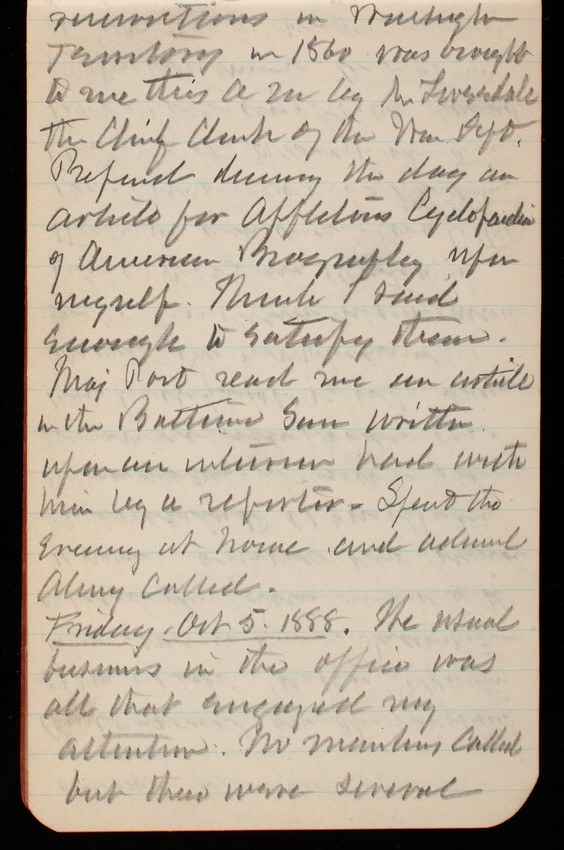 in Washington
Territory in 1860 was brought
to me this a m by Mr Tweedale
the Chief Clerk of the War Dept.
Prepared during the day an
article for Appletons Cyclopaedia
of American Biography upon
myself. Think I said
enough to satisfy them.
Maj Post read me an article
in the Baltimore Sun written
upon an interview had with
him by a reporter. Spent the
Evening at home and
called.
Friday Oct 5. 1888. The usual
business in the office was
all that engaged my
attention. No members Called
but there were several